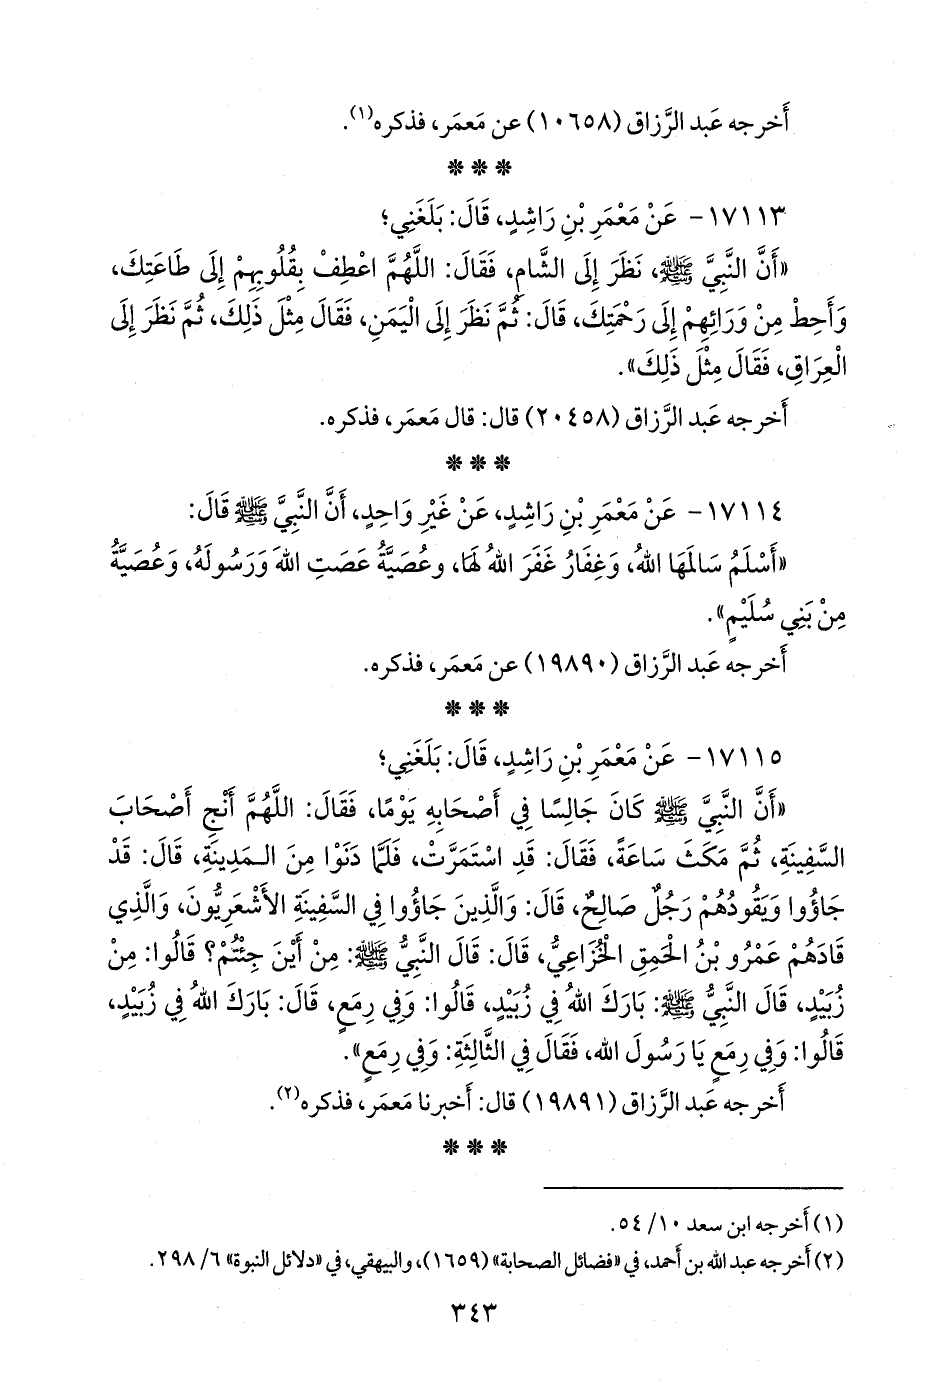 أَخرجه عَبد الرَّزاق (١٠٦٥٨) عن مَعمَر، فذكره(١).
***
١٧١١٣- عَنْ مَعْمَرِ بْنِ رَاشِدٍ، قَالَ: بَلَغَنِي؛
«أَنَّ النَّبِيَّ ﷺ، نَظَرَ إِلَى الشَّامِ، فَقَالَ: اللَّهُمَّ اعْطِفْ بِقُلُوبِهِمْ إِلَى طَاعَتِكَ،
وَأَحِطْ مِنْ وَرَائِهِمْ إِلَى رَحْمَتِكَ، قَالَ: ثُمَّ نَظَرَ إِلَى الْيَمَنِ، فَقَالَ مِثْلَ ذَلِكَ، ثُمَّ نَظَرَ إِلَى
الْعِرَاقِ، فَقَالَ مِثْلَ ذَلِكَ».
أَخرجه عَبد الرَّزاق (٢٠٤٥٨) قال: قال مَعمَر، فذكره.
***
١٧١١٤- عَنْ مَعْمَرِ بْنِ رَاشِدٍ، عَنْ غَيْرِ وَاحِدٍ، أَنَّ النَّبِيَّ ﷺ قَالَ:
«أَسْلَمُ سَالَمَهَا اللهُ، وَغِفَارُ غَفَرَ اللهُ لَهَا، وعُصَيَّةُ عَصَتِ اللهَ وَرَسُولَهُ، وَعُصَيَّةُ
مِنْ بَنِي سُلَيْمٍ».
أَخرجه عَبد الرَّزاق (١٩٨٩٠) عن مَعمَر، فذكره.
***
١٧١١٥- عَنْ مَعْمَرِ بْنِ رَاشِدٍ، قَالَ: بَلَغَنِي؛
«أَنَّ النَّبِيَّ ﷺ كَانَ جَالِسًا فِي أَصْحَابِهِ يَوْمًا، فَقَالَ: اللَّهُمَّ أَنْجِ أَصْحَابَ
السَّفِينَةِ، ثُمَّ مَكَثَ سَاعَةً، فَقَالَ: قَدِ اسْتَمَرَّتْ، فَلَمَّا دَنَوْا مِنَ الـمَدِينَةِ، قَالَ: قَدْ
جَاؤُوا وَيَقُودُهُمْ رَجُلٌ صَالِحٌ، قَالَ: وَالَّذِينَ جَاؤُوا فِي السَّفِينَةِ الأَشْعَرِيُّونَ، وَالَّذِي
قَادَهُمْ عَمْرُو بْنُ الْحَمِقِ الْخُزَاعِيُّ، قَالَ: قَالَ النَّبِيُّ ﷺ: مِنْ أَيْنَ جِئْتُمْ؟ قَالُوا: مِنْ
زُبَيْدٍ، قَالَ النَّبِيُّ ﷺ: بَارَكَ اللهُ فِي زُبَيْدٍ، قَالُوا: وَفِي رِمَعٍ، قَالَ: بَارَكَ اللهُ فِي زُبَيْدٍ،
قَالُوا: وَفِي رِمَعٍ يَا رَسُولَ الله، فَقَالَ فِي الثَّالِثَةِ: وَفِي رِمَعٍ».
أَخرجه عَبد الرَّزاق (١٩٨٩١) قال: أَخبرنا مَعمَر، فذكره(٢).
***
(١) أَخرجه ابن سعد ١٠/ ٥٤.
(٢) أَخرجه عبد الله بن أَحمد، في «فضائل الصحابة» (١٦٥٩)، والبيهقي، في «دلائل النبوة» ٦/ ٢٩٨.
٣٤٣